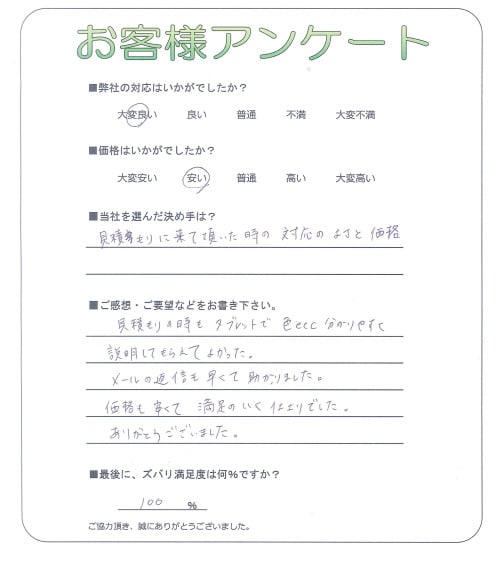 お客様アンケート
■弊社の対応はいかがでしたか？
大変良い 良い 普通 不満 大変不満
■価格はいかがでしたか？
大変安い 安い 普通 高い 大変高い
■当社を選んだ決め手は？
見積もりに来て頂いた時の 対応のよさと価格
■ご感想・ご要望などをお書き下さい。
見積もりの時も タブレットで 色ecc 分かりやすく
説明してもらえてよかった。
メールの返信も早くて助かりました。
価格も安くて 満足のいく仕上りでした。
ありがとうございました。
■最後に、ズバリ満足度は何%ですか？
100 %
ご協力頂き、誠にありがとうございました。